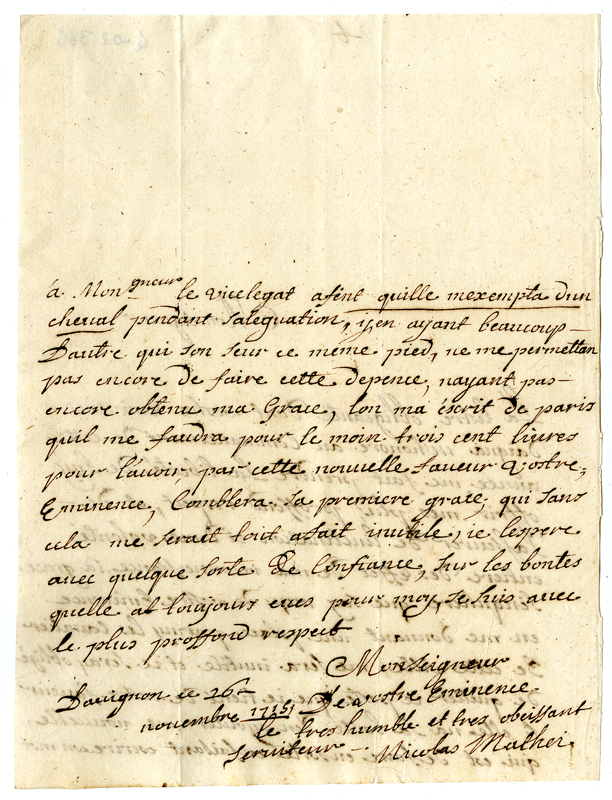 à Mongneur le vicelegat afent quille mexempta dun
cheval pendant saleguation, y en ayant beaucoup
Dautre qui son seur ce meme pied, ne me permettan
pas encore de faire cette depence, nayant pas
encore obtenu ma Grace, lon ma écrit de paris
quil me faudra pour le moin trois cent livres
pour lavoir, par cette nouvelle faveur Vostre
Eminence, Comblera sa premiere grace, qui sans
cela me serait tout afait inutile, ie lespere
avec quelque sorte de Confiance, sur les bontes
quelle at toujours eues pour moy, Je suis avec
le plus proffond respect
Monseigneur
Davignon ce 26 De vostre Eminence
novembre le tres humble et tres obeissant
serviteur Nicolas Mathei